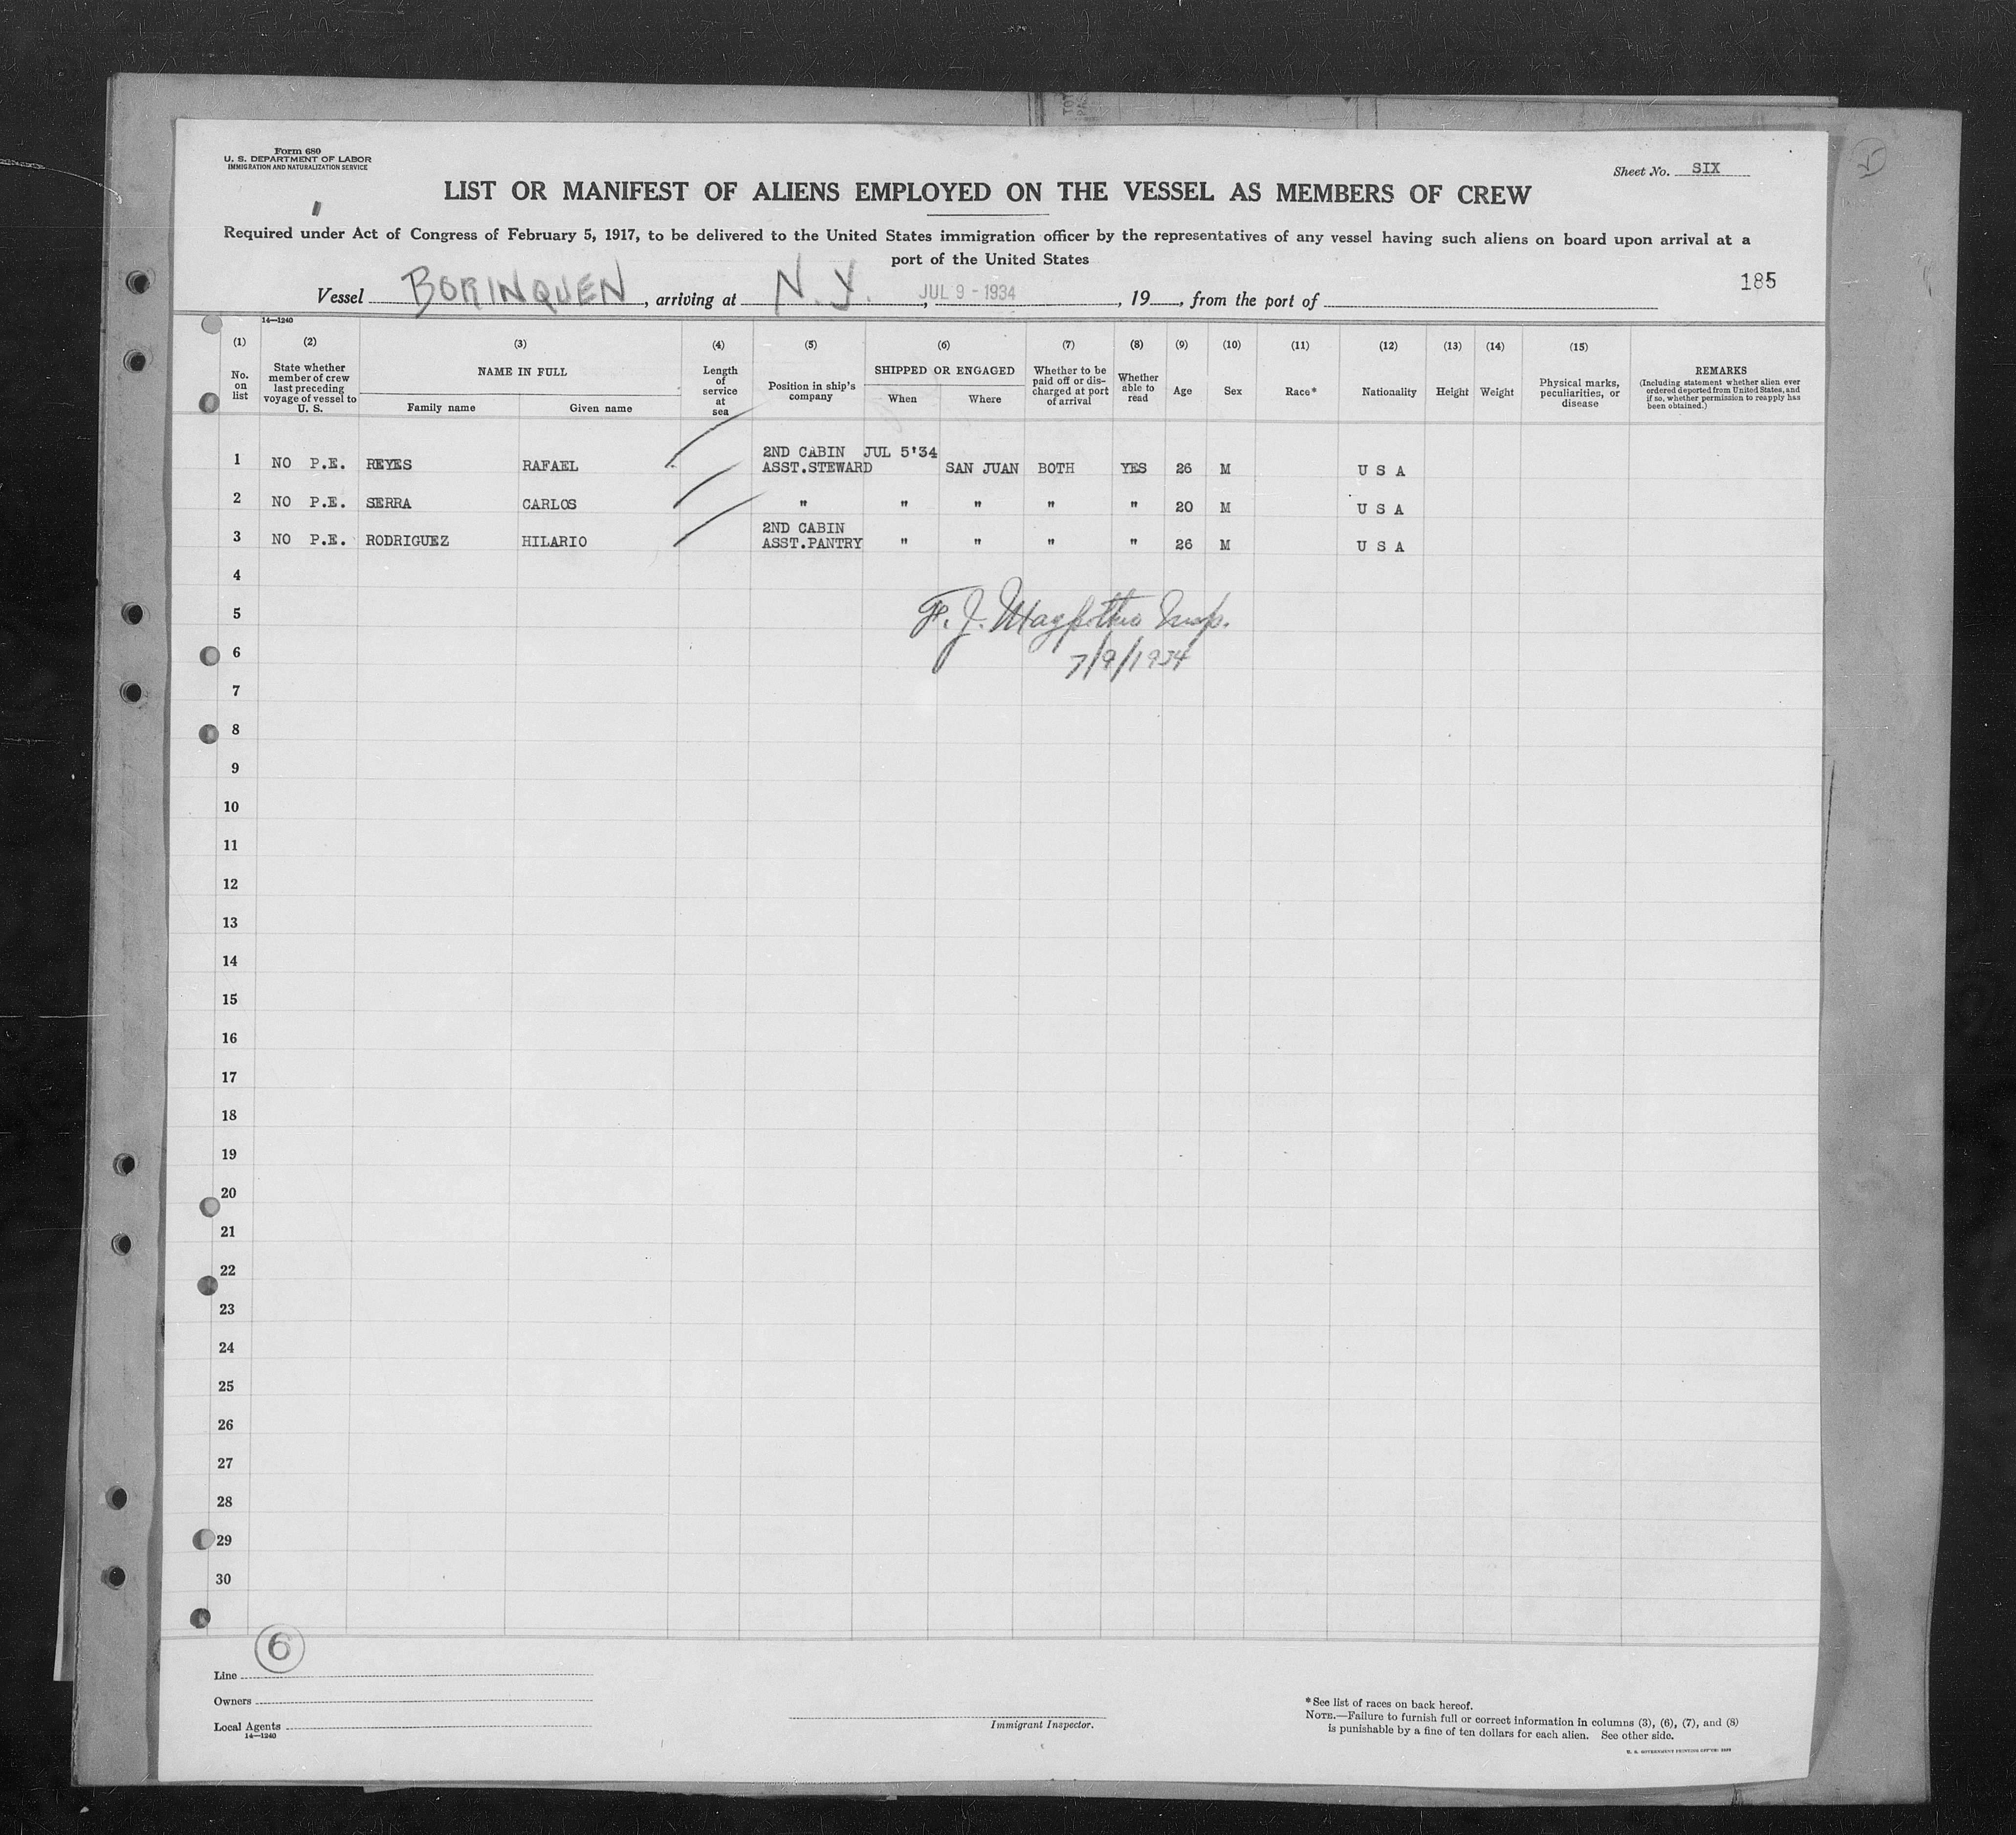 Form 680
U. S. DEPARTMENT OF LABOR
IMMIGRATION AND NATURALIZATION SERVICE
Sheet No. SIX
LIST OR MANIFEST OF ALIENS EMPLOYED ON THE VESSEL AS MEMBERS OF CREW
Required under Act of Congress of February 5, 1917, to be delivered to the United States immigration officer by the representatives of any vessel having such aliens on board upon arrival at a
port of the United States
185
Vessel BORINQUEN, arriving at N. Y., JUL 9 - 1934, 19, from the port of
14—1240
(1) (2) (3) (4) (5) (6) (7) (8) (9) (10) (11) (12) (13) (14) (15)
No. on list
State whether member of crew last preceding voyage of vessel to U. S.
NAME IN FULL
Family name Given name
Length of service at sea
Position in ship's company
SHIPPED OR ENGAGED
When Where
Whether to be paid off or discharged at port of arrival
Whether able to read
Age
Sex
Race*
Nationality
Height
Weight
Physical marks, peculiarities, or disease
REMARKS
(Including statement whether alien ever ordered deported from United States, and if so, whether permission to reapply has been obtained.)
2ND CABIN JUL 5'34
1 NO P.E. REYES RAFAEL ASST.STEWARD SAN JUAN BOTH YES 26 M U S A
2 NO P.E. SERRA CARLOS " " " " " 20 M U S A
2ND CABIN
3 NO P.E. RODRIGUEZ HILARIO ASST.PANTRY " " " " 26 M U S A
4
5 F. J. Insp.
6 7/9/1934
7
8
9
10
11
12
13
14
15
16
17
18
19
20
21
22
23
24
25
26
27
28
29
30
6
Line
Owners
Local Agents
14—1240
Immigrant Inspector.
*See list of races on back hereof.
NOTE.—Failure to furnish full or correct information in columns (3), (6), (7), and (8)
is punishable by a fine of ten dollars for each alien. See other side.